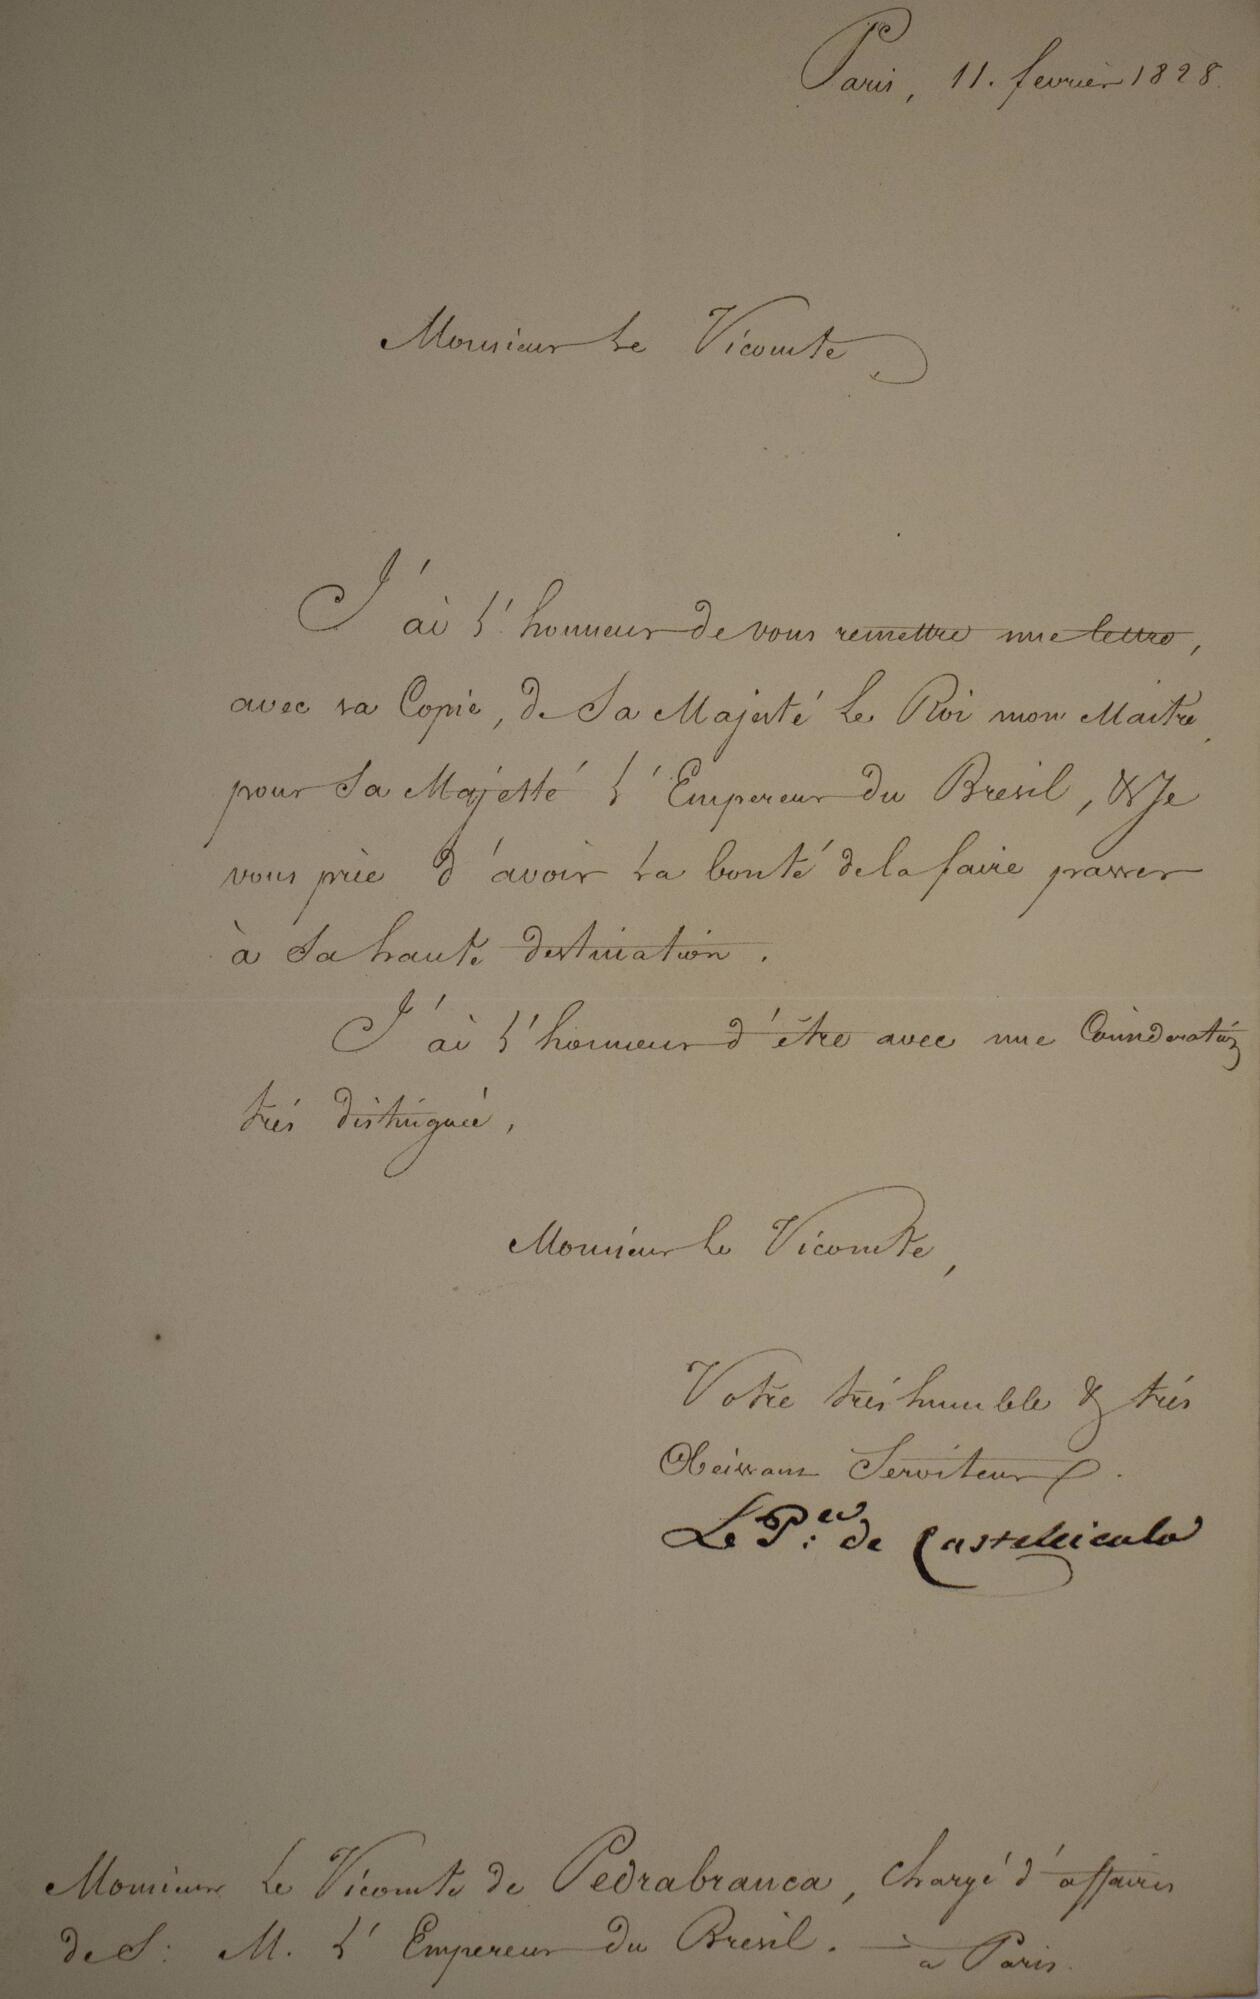 Paris, 11. fevrier 1828.
Monsieur Le Vicomte
J'ai l'honneur de vous remettre une lettre,
avec sa Copie, de Sa Majesté Le Roi mon Maitre,
pour Sa Majesté l'Empereur du Bresil, & Je
vous prie d'avoir la bonté de la faire passer
à Sa haute destination.
J'ai l'honneur d'être avec une Consideration
trés distinguée,
Monsieur Le Vicomte,
Votre trés humble & trés
Obeissant Serviteur.
Le P.ce de Castelcicala
Monsieur Le Vicomte de Pedrabranca, chargé d'affaires
de S: M. l'Empereur du Bresil. — à Paris.